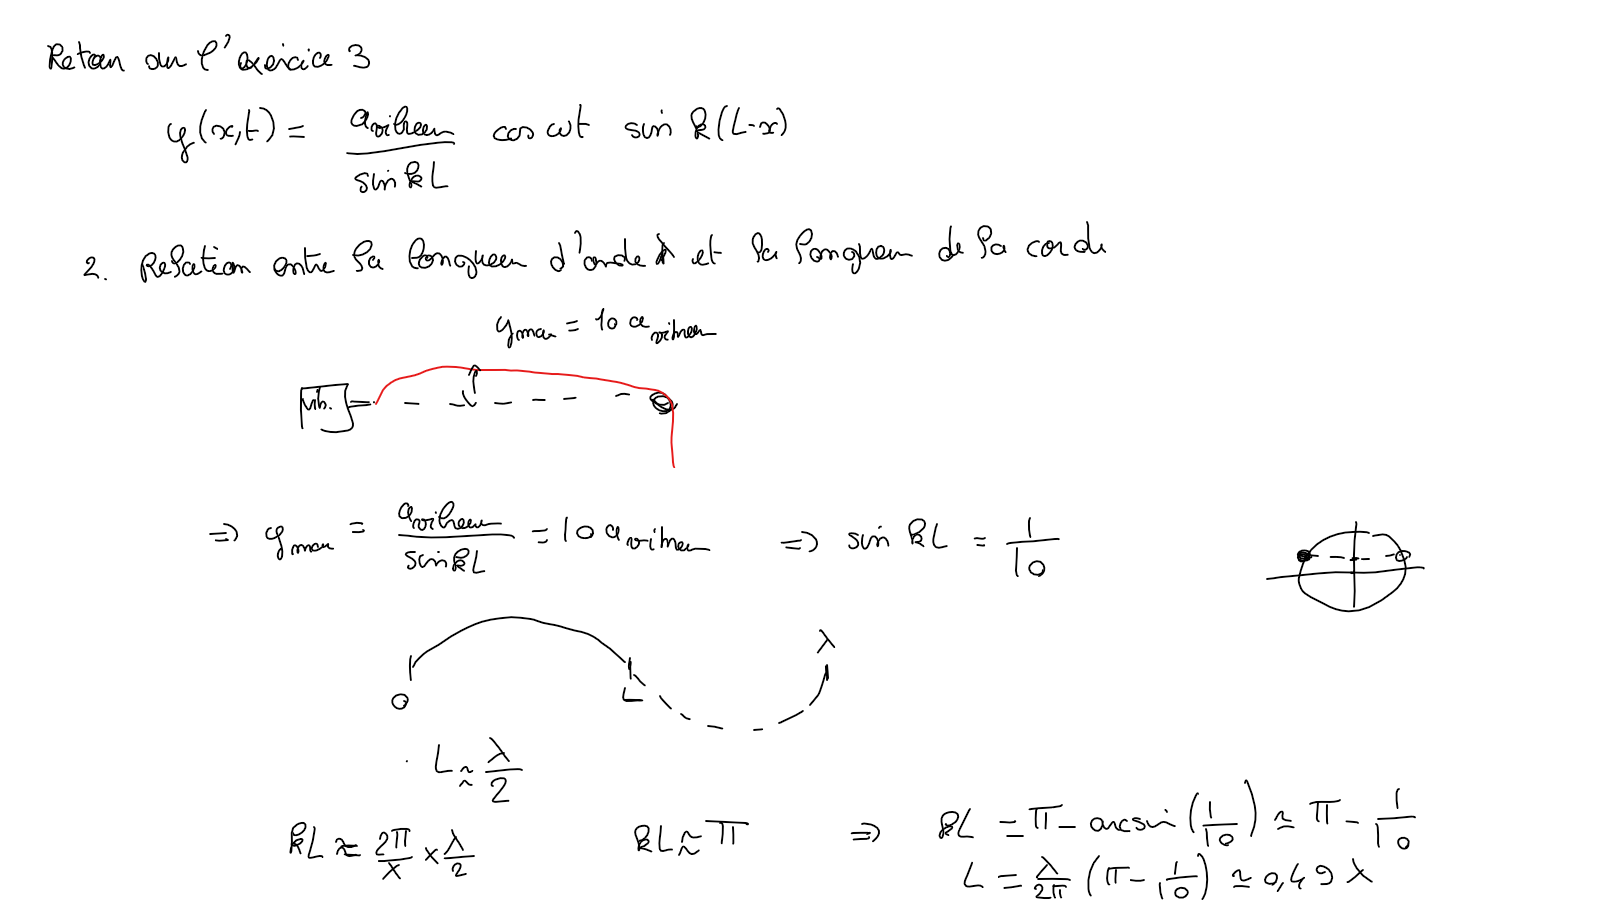 Retour sur l'exercice 3
y(x,t) = a_vibreur / sin kL cos ωt sin k(L-x)
2. Relation entre la longueur d'onde λ et la longueur de la corde
y_max = 10 a_vibreur
vib.
⇒ y_max = a_vibreur / sin kL = 10 a_vibreur ⇒ sin kL = 1/10
λ
O L
L ≈ λ/2
kL ≈ 2π/λ × λ/2 kL ≈ π ⇒ kL = π - arcsin(1/10) ≃ π - 1/10
L = λ/2π (π - 1/10) ≃ 0,49 λ